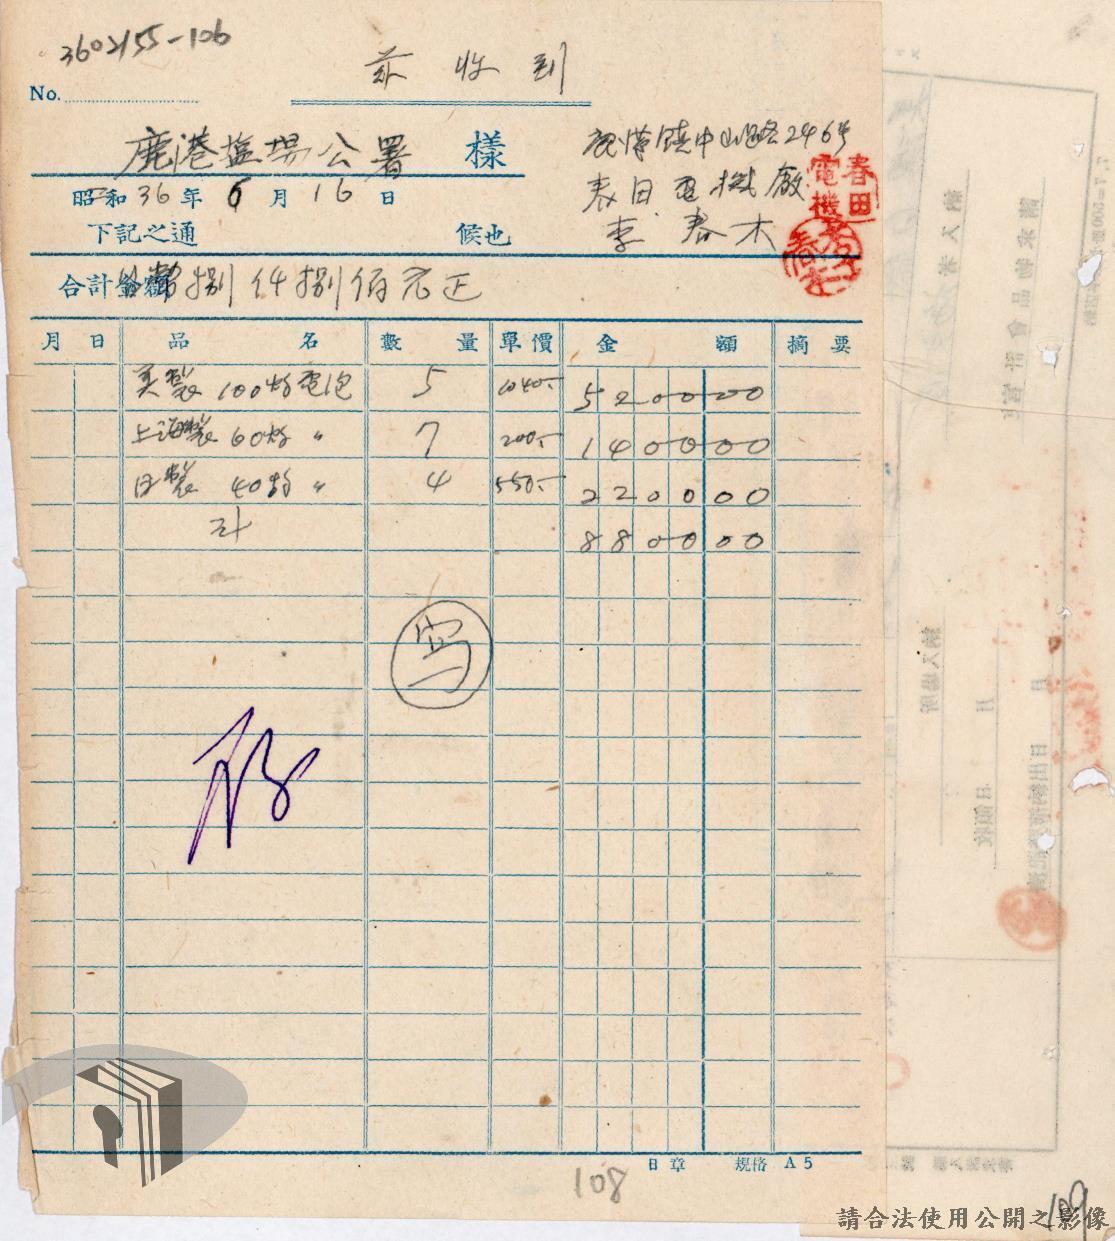 3602155-106
No.
茲收到
鹿港塩場公署 樣
鹿港鎮中山路246号
春田電機廠
李春木
春田
電機
昭和36年6月16日
下記之通 候也
合計金額 捌仟捌佰元正
月 日 品名 數量 單價 金額 摘要
美製 100燭電泡 5 1040.- 5200 00
上海製 60燭 〃 7 200.- 1400 00
日製 40燭 〃 4 550.- 2200 00
計 8800 00
日章 規格 A5
108
109
請合法使用公開之影像